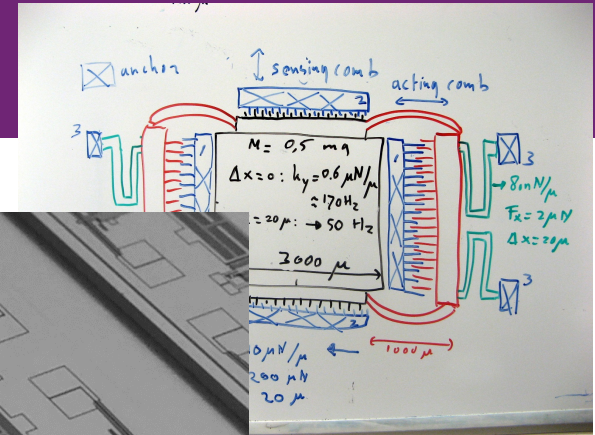 anchor
sensing comb
acting comb
2
3
1
M = 0,5 mg
Δx=0: ky=0.6 μN/μ
≈170Hz
=20μ: → 50 Hz
3000 μ
1
3
→ 80nN/μ
Fx=2μN
Δx=20μ
3
2
0μN/μ ←
200 μN
20 μ
1000μ